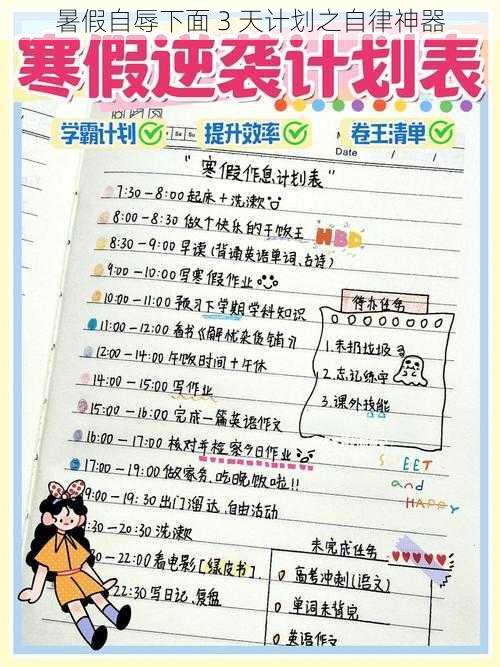 暑假自辱下面 3 天计划之自律神器
寒假逆袭计划表
学霸计划 提升效率 卷王清单
Date
"寒假作息计划表"
7:30-8:00起床+洗漱
8:00-8:30 做个快乐的干饭王
HBD
8:30-9:00 早读(背诵英语单词、古诗)
9:00-10:00写寒假作业
10:00-11:00 预习下学期学科知识
11:00-12:00 看书《解忧杂货铺》
12:00-14:00 午饭时间+午休
14:00-15:00 写作业
15:00-16:00 完成一篇英语作文
16:00-17:00 核对并检察今日作业
17:00-19:00 做家务、吃晚饭啦!!
9:00-19:30 出门溜达、自由活动
:30-20:30 洗漱
30-22:00看电影[绿皮书].
22:30 写日记、复盘
待办任务
1.未扔垃圾
2.忘记练字
3.课外技能
SWEET
and
HAPPY
未完成任务
高考冲刺(语文)
单词未背完
英语作文